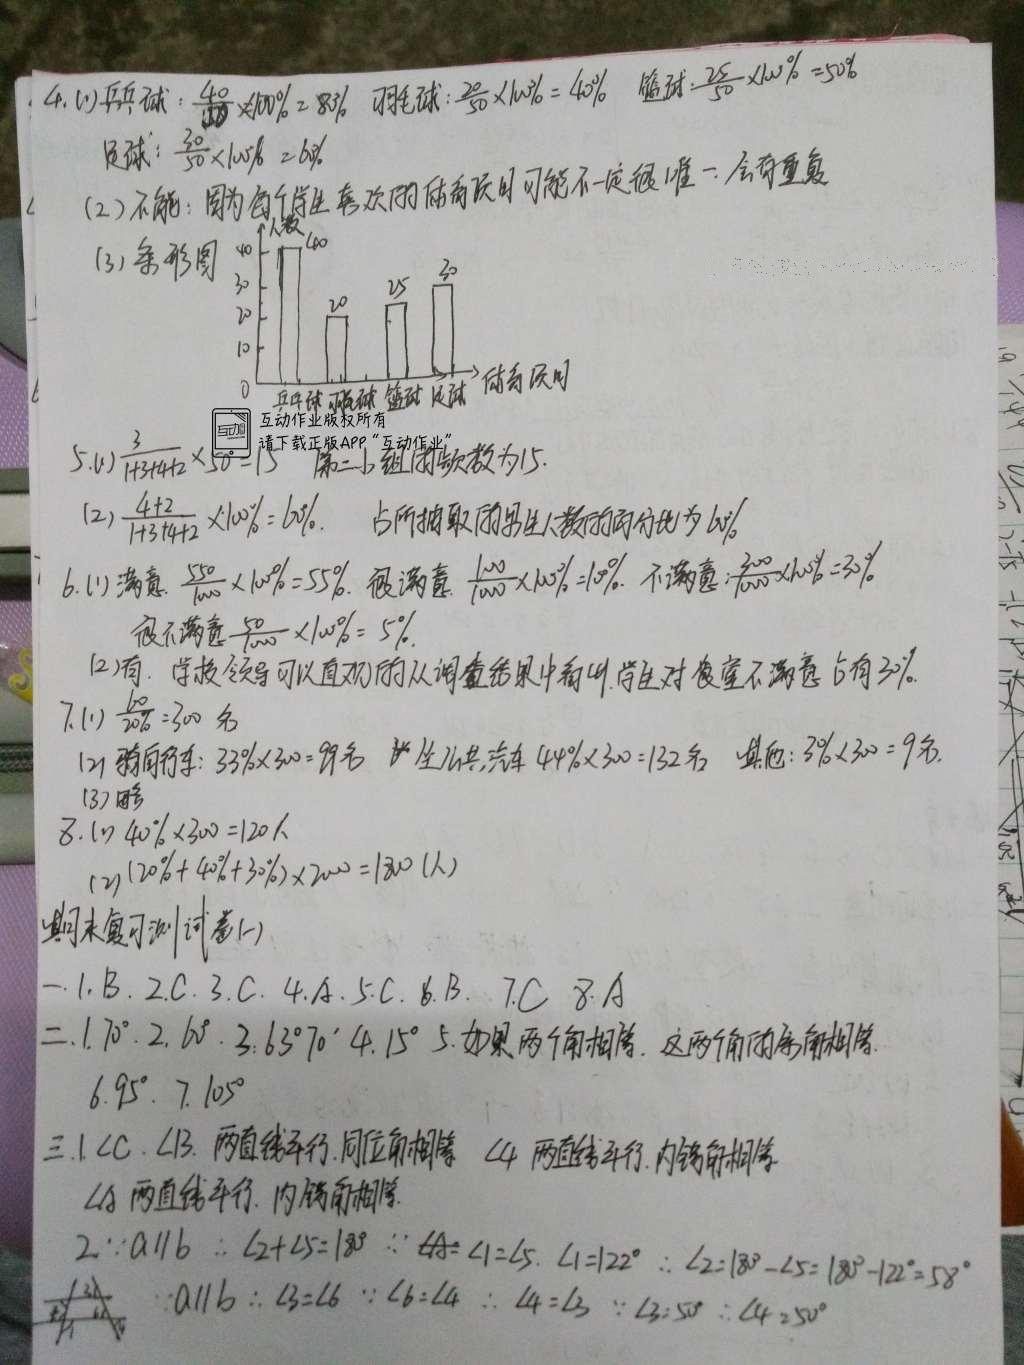 4.(1)乒乓球：40/50×100%=80% 羽毛球：20/50×100%=40% 篮球：25/50×100%=50%
足球：30/50×100%=60%
(2)不能：因为每个学生喜欢的体育项目可能不一定很唯一.会有重复
(3)条形图
人数
40 30 20 10 0
40 20 25 30
乒乓球 羽毛球 篮球 足球 体育项目
互动作业版权所有
请下载正版APP“互动作业”
5.(1) 3/1+3+4+2 ×50=15 第二小组的频数为15.
(2) 4+2/1+3+4+2 ×100%=60%. 占所抽取的男生人数的百分比为60%
6.(1)满意 550/1000×100%=55%. 很满意 100/1000×100%=10%. 不满意：300/1000×100%=30%
很不满意 50/1000×100%=5%.
(2)有.学校领导可以直观的从调查结果中看出,学生对食堂不满意占有30%.
7.(1) 60/20%=300名
(2)骑自行车：33%×300=99名 坐公共汽车44%×300=132名 其他：3%×300=9名.
(3)略
8.(1)40%×300=120人
(2)(20%+40%+30%)×2000=1800(人)
期末复习测试卷(一)
一.1.B. 2.C. 3.C. 4.A. 5.C. 6.B. 7.C 8.A
二.1.70°. 2.60°. 3.63°70′ 4.15° 5.如果两个角相等.这两个角的余角相等.
6.95°. 7.105°
三.1.∠C.∠B.两直线平行.同位角相等 ∠4 两直线平行.内错角相等
∠A 两直线平行.内错角相等.
2.∵a∥b ∴∠2+∠5=180° ∵∠1=∠5. ∠1=122° ∴∠2=180°-∠5=180°-122°=58°
∵a∥b ∴∠3=∠6 ∵∠6=∠4 ∴∠4=∠3 ∵∠3=50° ∴∠4=50°